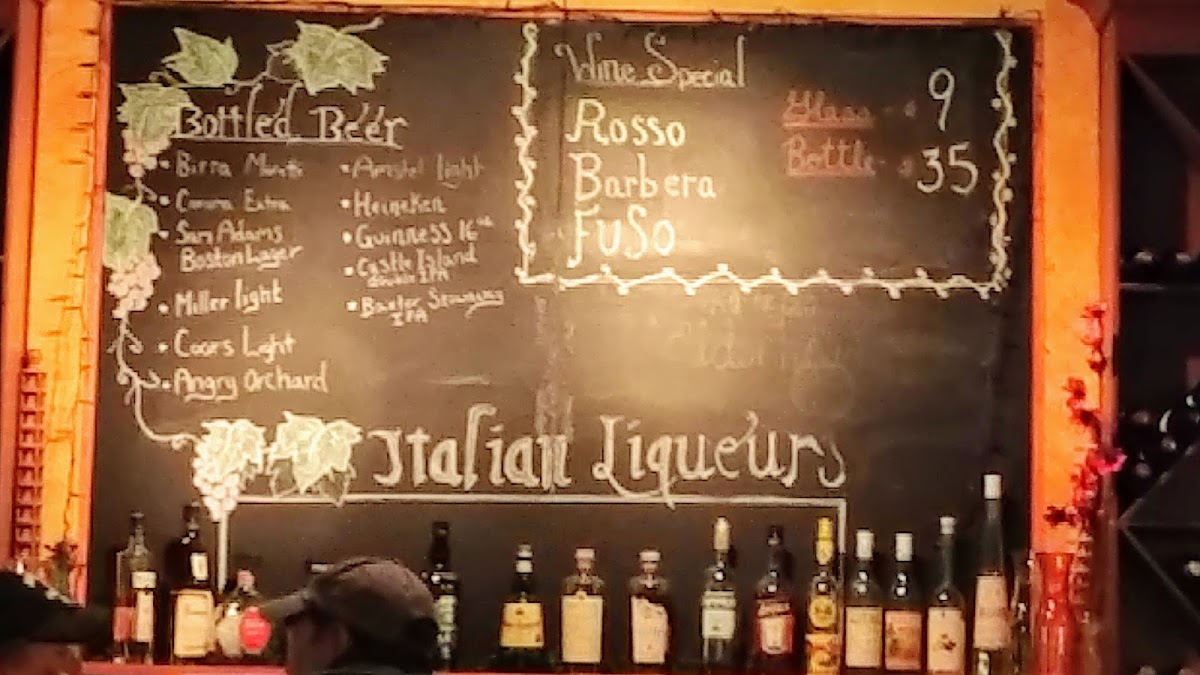 Bottled Beer
• Birra Moretti
• Corona Extra
• Sam Adams
Boston Lager
• Miller light
• Coors Light
• Angry Orchard
• Amstel light
• Heineken
• Guinness 16oz
• Castle Island
IPA
• Baxter Stowaway
IPA
Wine Special
Rosso
Barbera
Fuso
Glass - $ 9
Bottle - $ 35
Italian Liqueurs